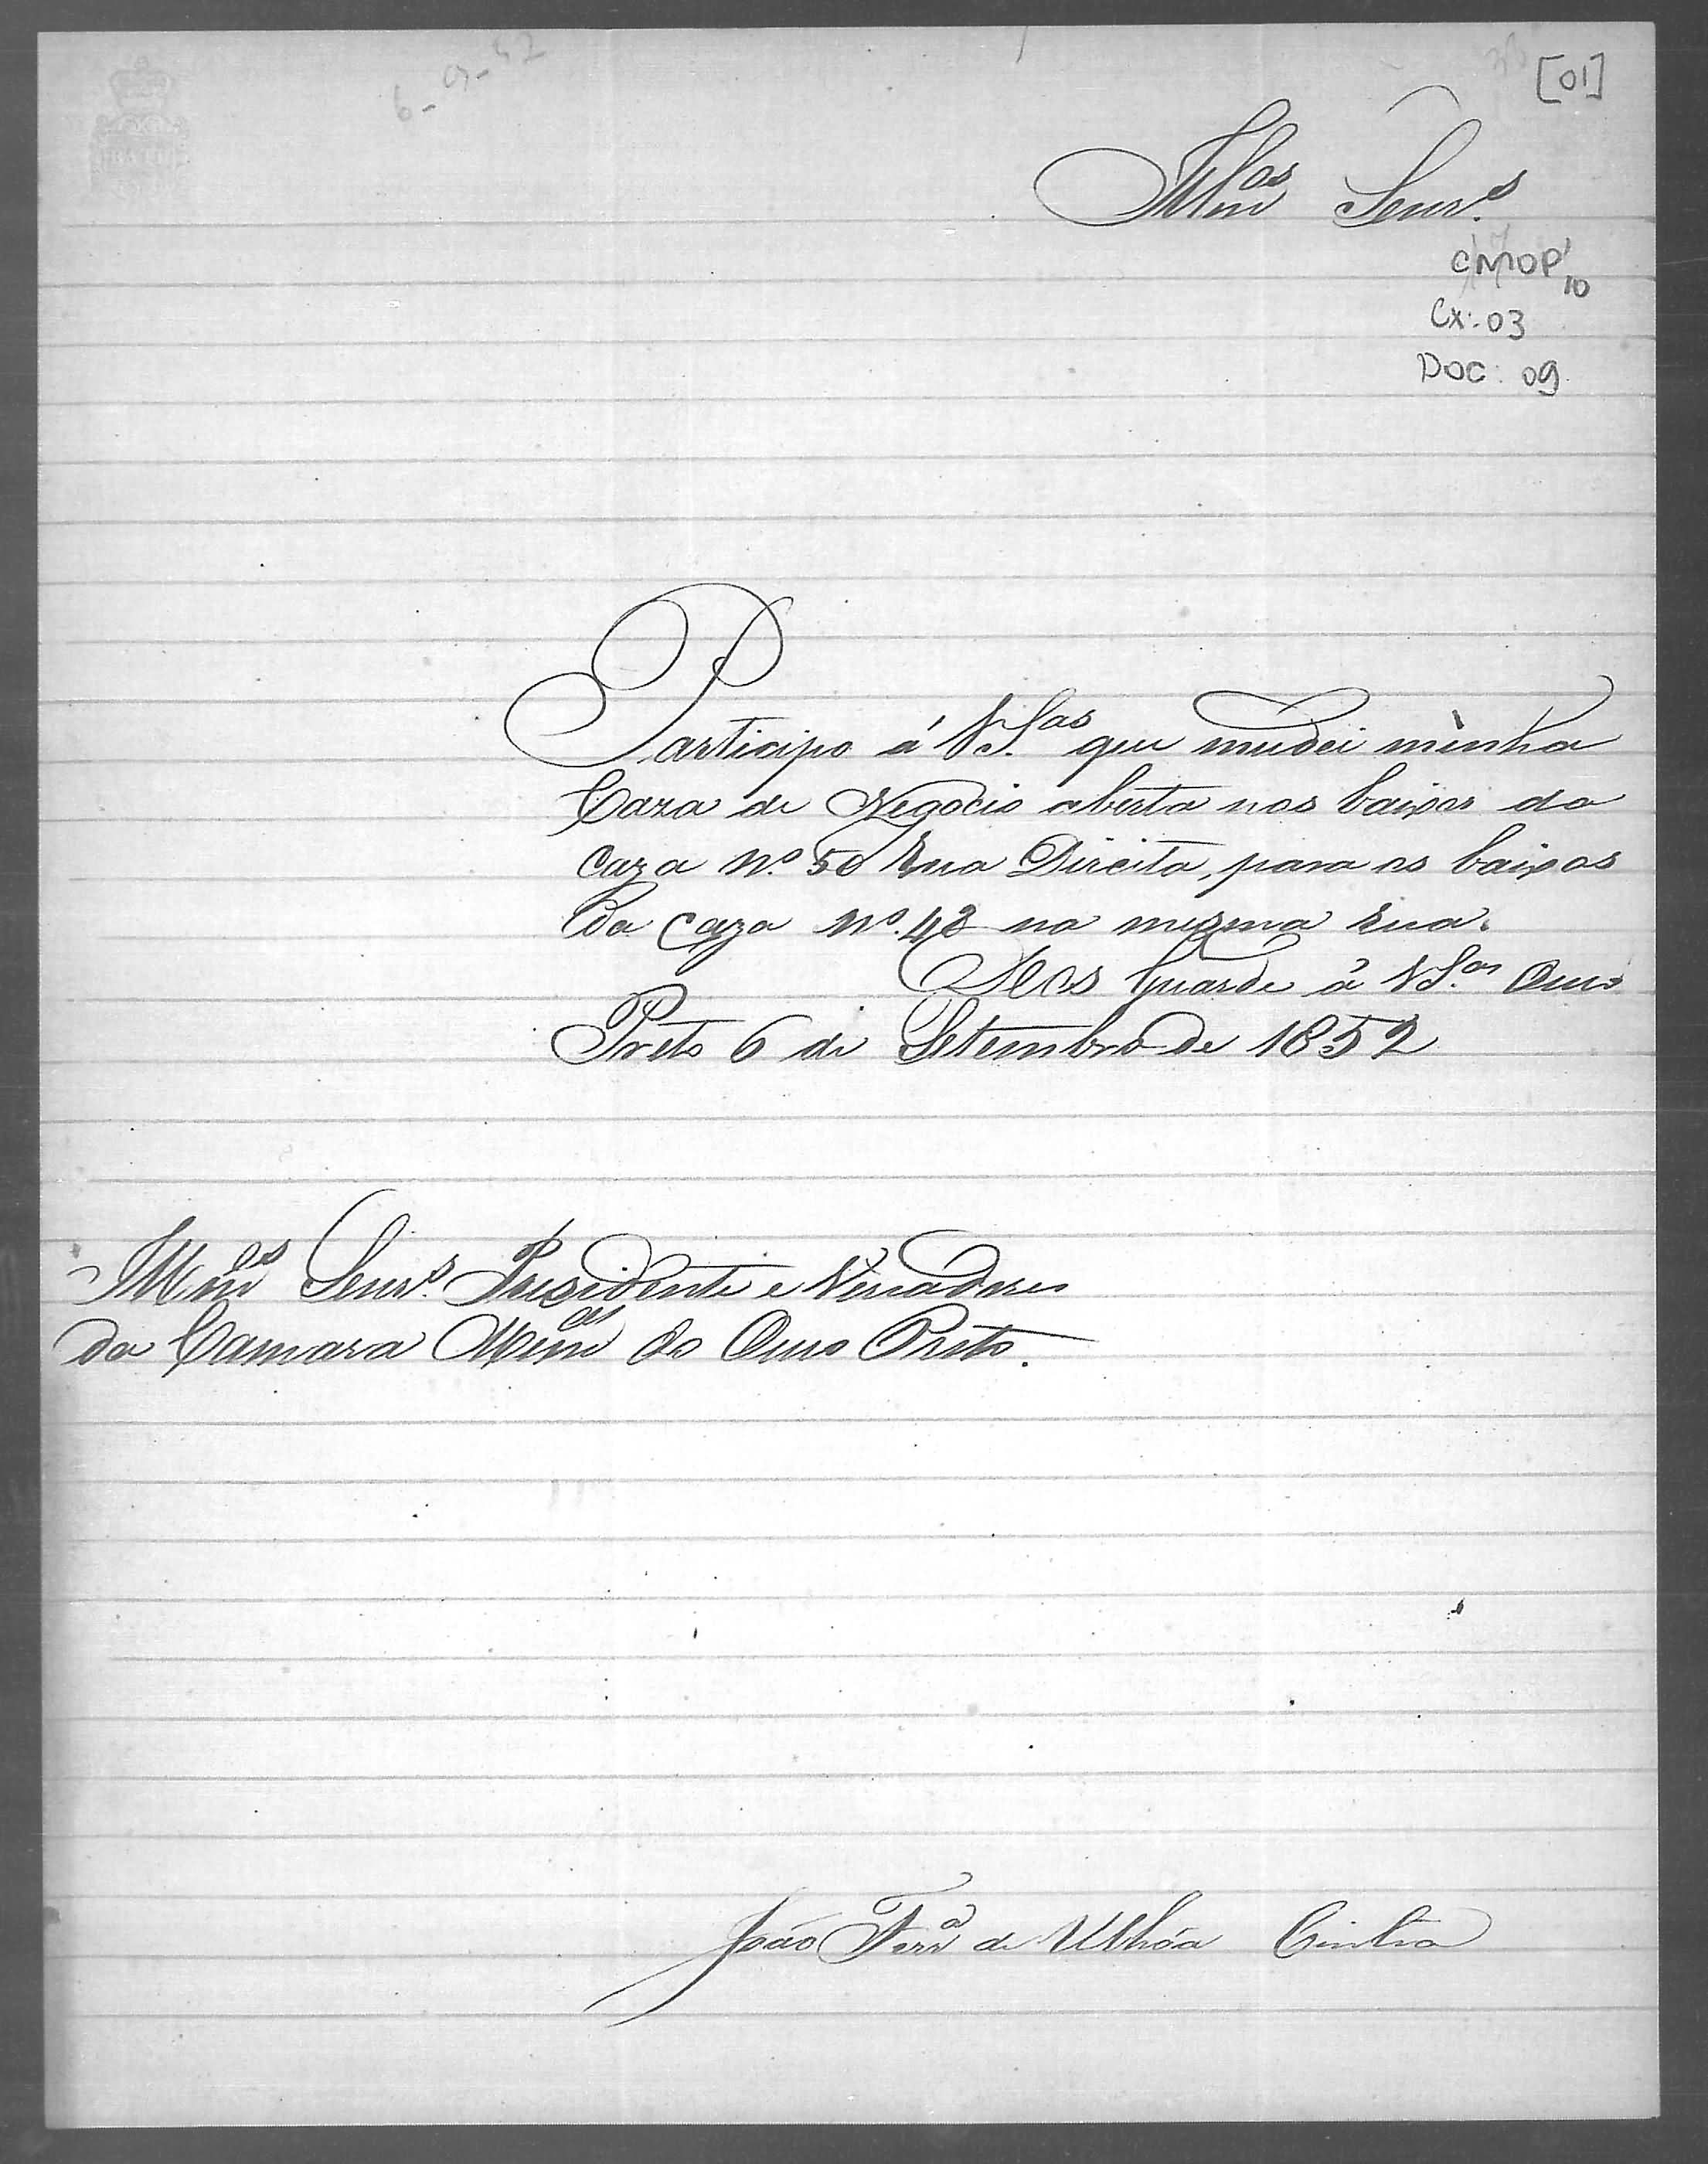 6-9-52
[01]
Illmos Senrs.
CMOP 1/10
Cx: 03
DOC: 09
Participo á V S.as que mudei minha
Caza de Negocio aberta nos baixos da
caza No. 50 Rua Direita, para os baixos
da caza No. 48 na mesma rua.
Deos Guarde á V S.as Ouro
Preto 6 de Setembro de 1852
Illmos Senrs. Presidente e Vereadores
da Camara Mcm do Ouro Preto.
João Ferra de Ulhôa Cintra